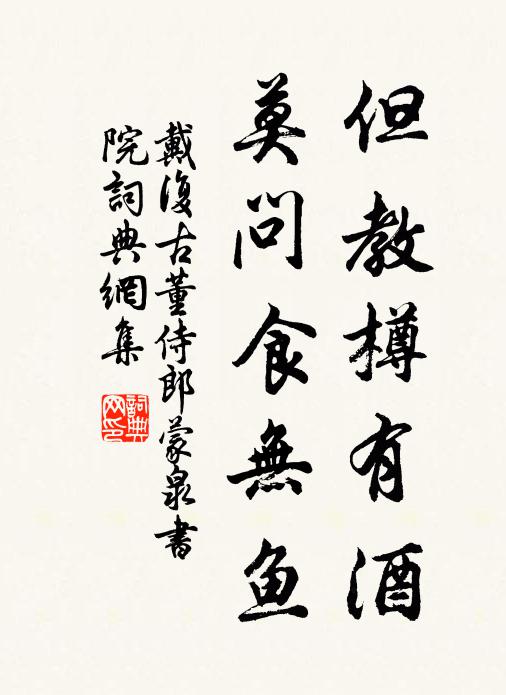 但教樽有酒
莫問食無魚
戴復古董侍郎蒙泉書
院詞典網集
詞典网印